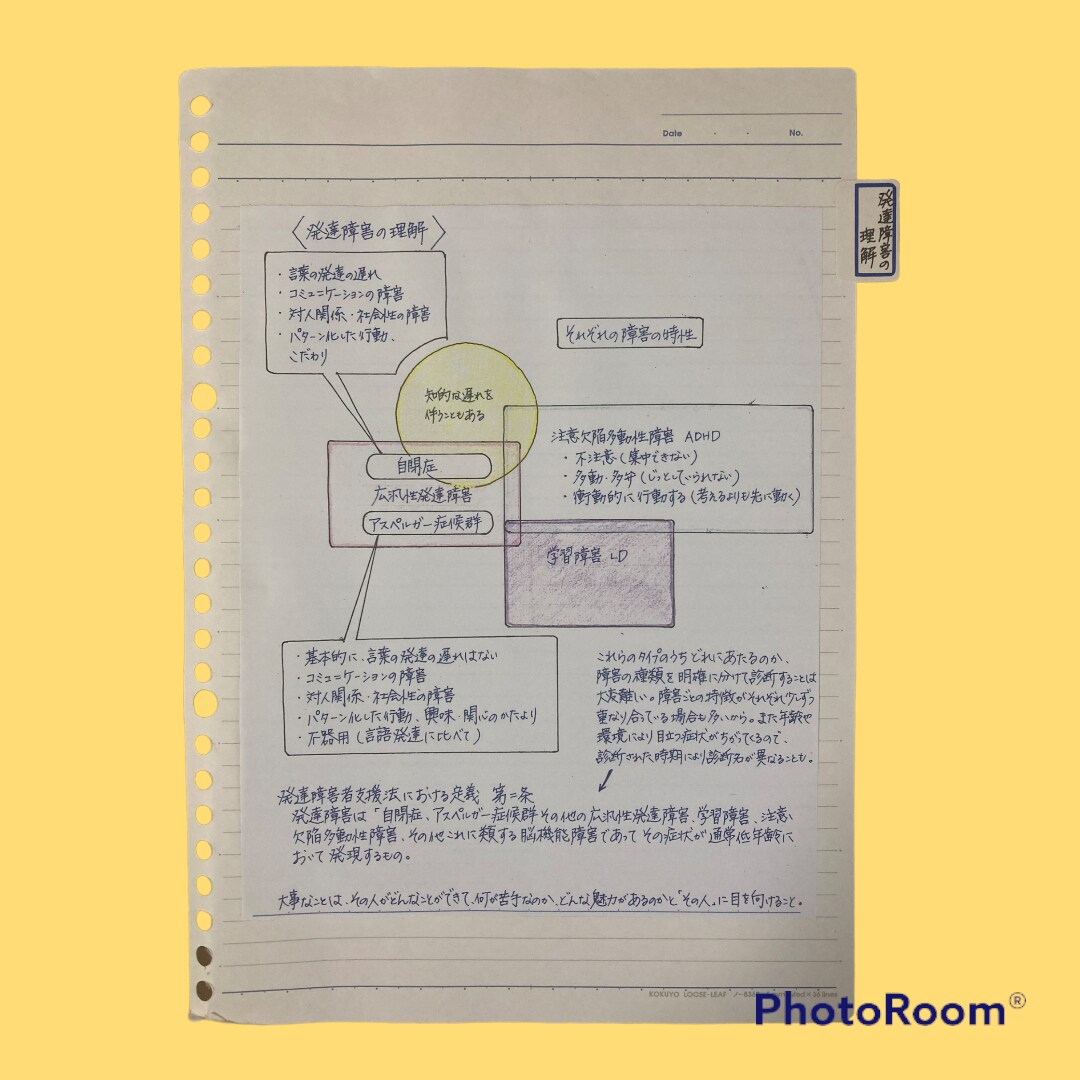 Date ・ ・ No.
発達障害の
理解
〈発達障害の理解〉
・言葉の発達の遅れ
・コミュニケーションの障害
・対人関係・社会性の障害
・パターン化した行動、
こだわり
それぞれの障害の特性
知的な遅れを
伴うこともある
自閉症
広汎性発達障害
アスペルガー症候群
注意欠陥多動性障害 ADHD
・不注意(集中できない)
・多動・多弁(じっとしていられない)
・衝動的に行動する(考えるよりも先に動く)
学習障害 LD
・基本的に、言葉の発達の遅れはない
・コミュニケーションの障害
・対人関係・社会性の障害
・パターン化した行動、興味・関心のかたより
・不器用(言語発達に比べて)
これらのタイプのうちどれにあたるのか、
障害の種類を明確に分けて診断することは
大変難しい。障害ごとの特徴がそれぞれ少しずつ
重なり合っている場合も多いから。また年齢や
環境により目立つ症状がちがってくるので、
診断された時期により診断名が異なることも。
発達障害者支援法における定義 第二条
発達障害は「自閉症、アスペルガー症候群その他の広汎性発達障害、学習障害、注意
欠陥多動性障害、その他これに類する脳機能障害であってその症状が通常低年齢に
おいて発現するもの。
大事なことは、その人がどんなことができて、何が苦手なのか、どんな魅力があるのかと「その人」に目を向けること。
KOKUYO LOOSE-LEAF
PhotoRoom®